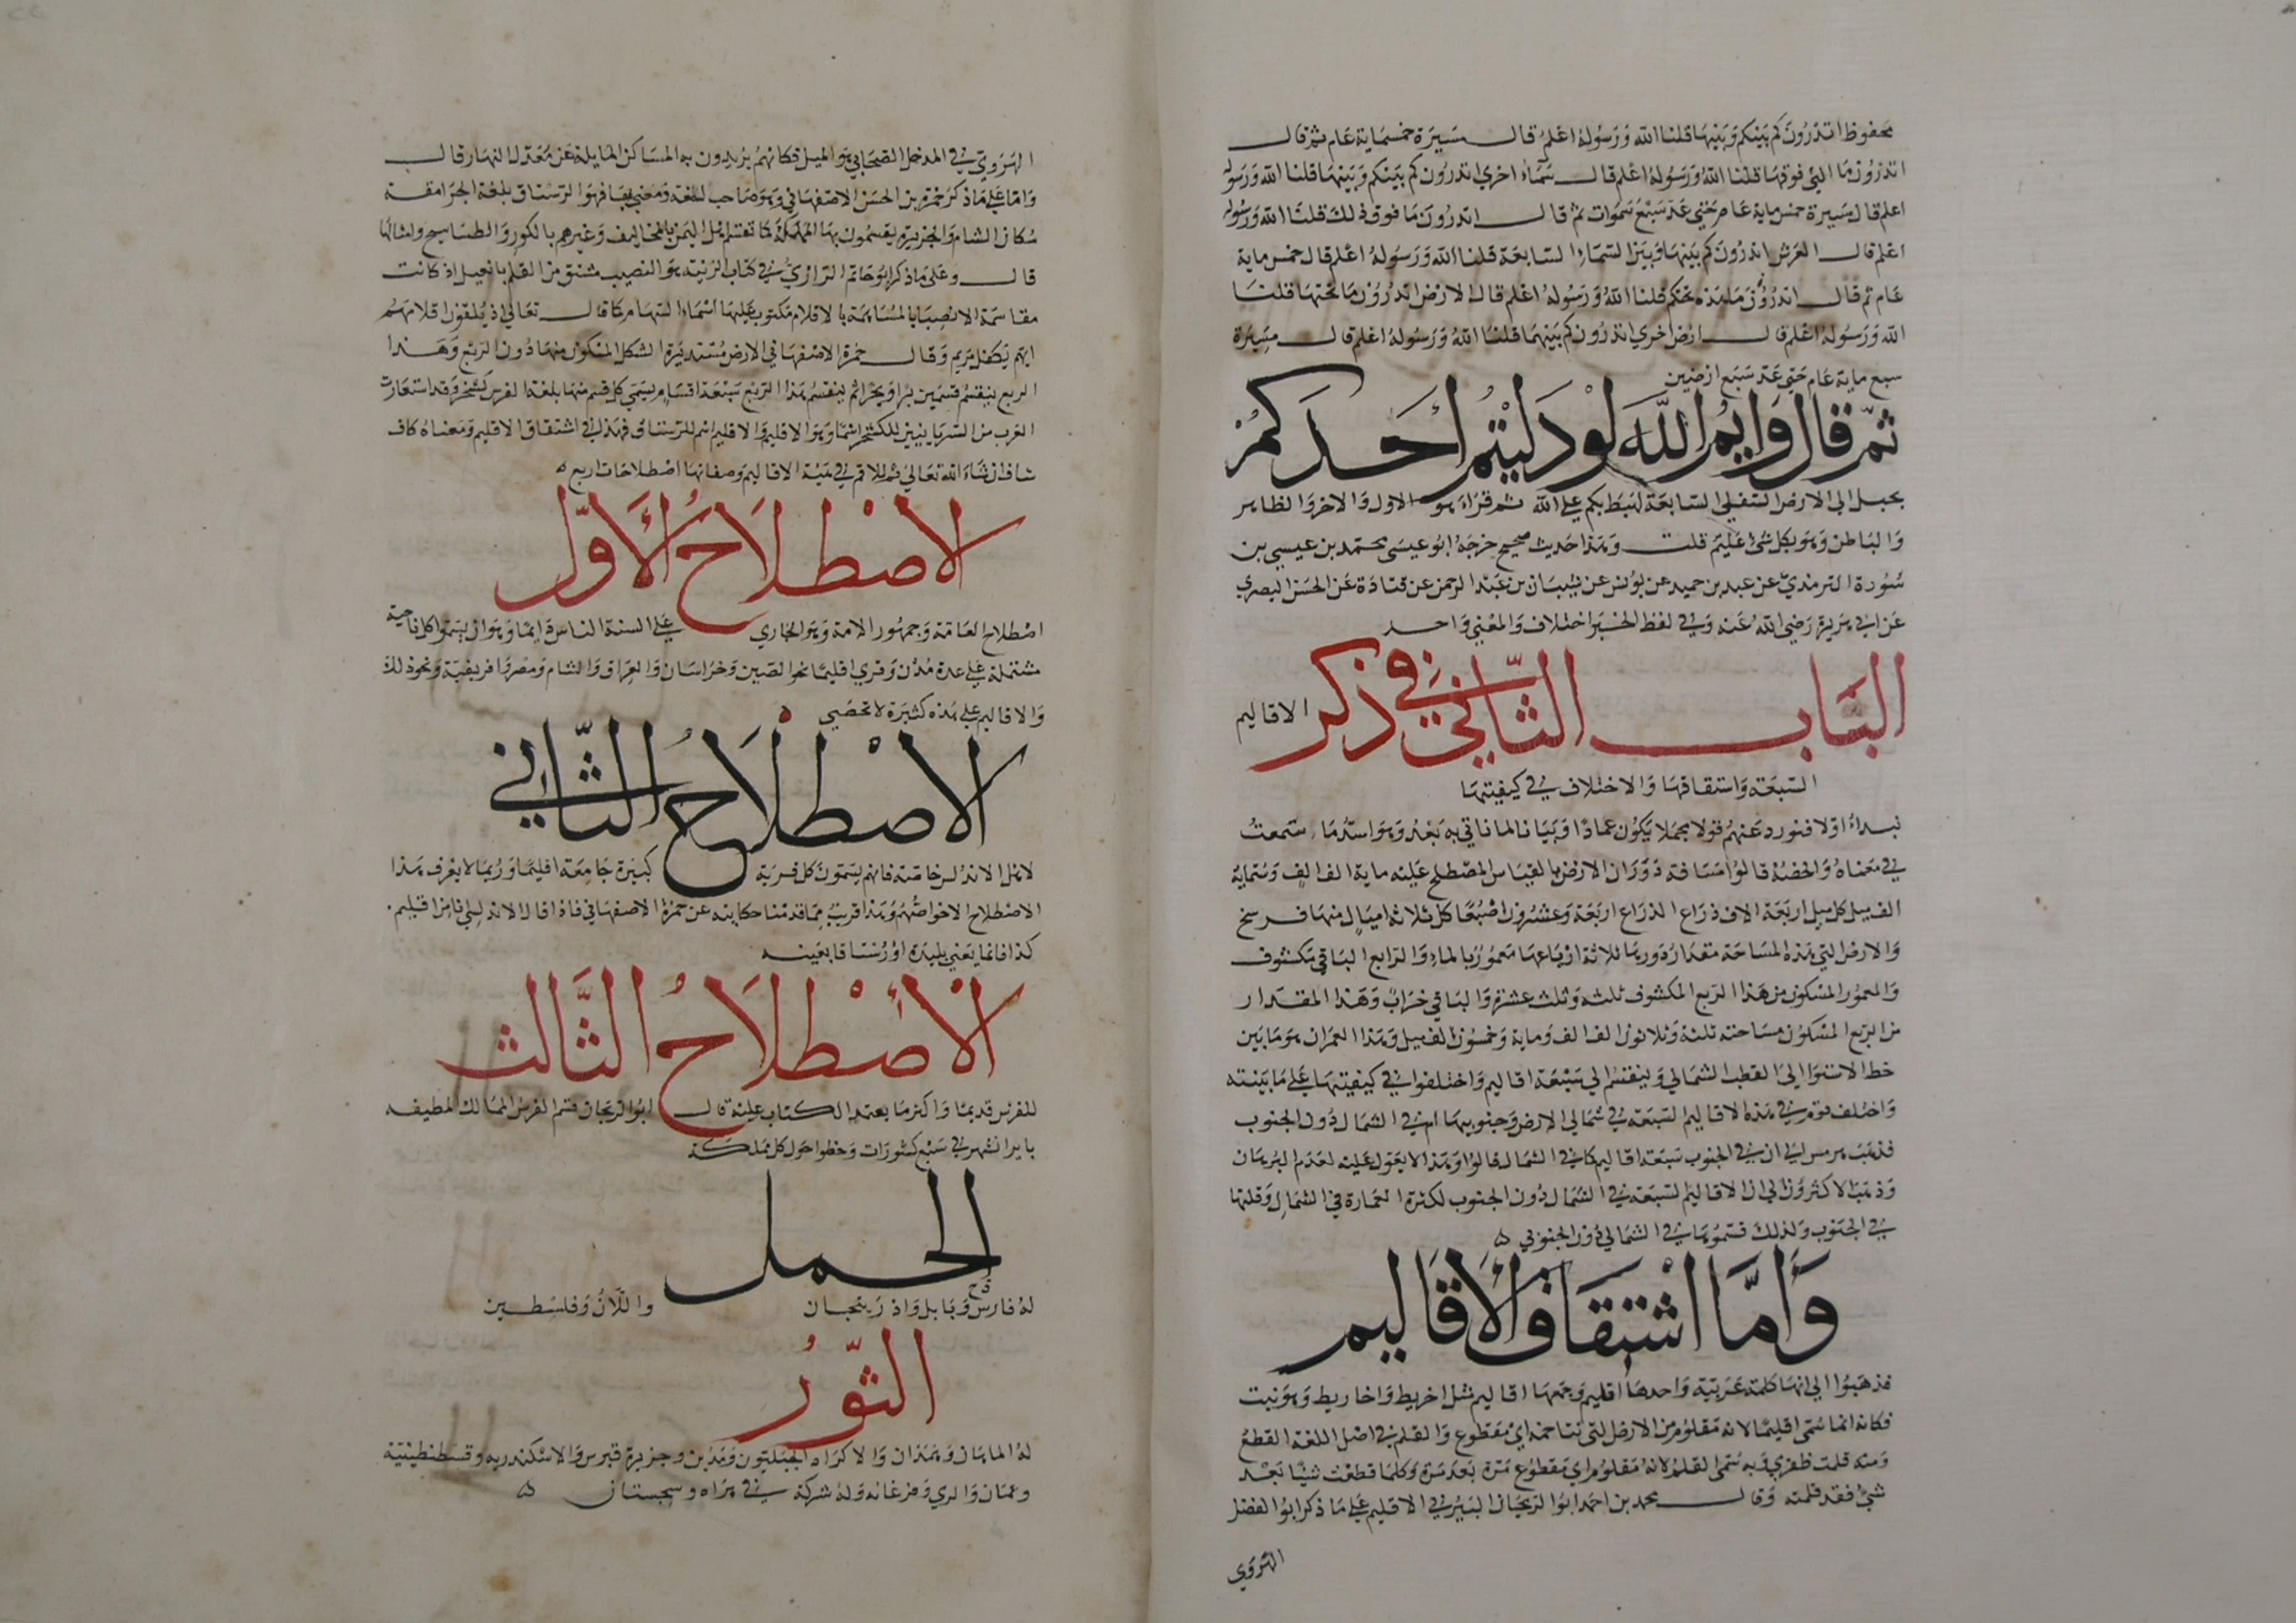 محفوظ اتدرون كم بينكم وبينها قلنا الله ورسوله اعلم قال مسيرة خمسماية عام ثم قال
اتدرون ما التي فوقها قلنا الله ورسوله اعلم قال سماء اخري اتدرون كم بينكم وبينها قلنا الله ورسوله
اعلم قال مسيرة خمس ماية عام حتي عد سبع سموات ثم قال اتدرون ما فوق ذلك قلنا الله ورسوله
اعلم قال العرش اتدرون كم بينها وبين السماء السابعة قلنا الله ورسوله اعلم قال خمس ماية
عام ثم قال اتدرون ما هذه تحتكم قلنا الله ورسوله اعلم قال الارض اتدرون ما تحتها قلنا
الله ورسوله اعلم قال ارض اخري اتدرون كم بينهما قلنا الله ورسوله اعلم قال مسيرة
سبع ماية عام حتي عد سبع ارضين
ثم قال وايم الله لو دليتم احدكم
بحبل الي الارض السفلي السابعة لهبط بكم علي الله ثم قراء هو الاول والاخر والظاهر
والباطن وهو بكل شئ عليم قلت وهذا حديث صحيح خرجه ابو عيسى محمد بن عيسي بن
سورة الترمذي عن عبد بن حميد عن يونس عن شيبان بن عبد الرحمن عن قتادة عن الحسن البصري
عن ابي هريرة رضي الله عنه وفي لفظ الخبر اختلاف والمعني واحد
الباب الثاني في ذكر الاقاليم
السبعة واشتقاقها والاختلاف في كيفيتها
نبداء اولا فنورد عنهم قولا مجملا يكون عمادا وبيانا لما ناتي به بعد وهو اسد ما سمعت
في معناه والخصه قالوا مسافة دوران الارض بالقياس المصطلح عليه ماية الف الف وستماية
الف ميل كل ميل اربعة الاف ذراع الذراع اربعة وعشرون اصبعا كل ثلاثة اميال منها فرسخ
والارض التي هذه المساحة مقدار دورها ثلاثة ارباعها مغمور بالماء والرابع الباقي مكشوف
والمعمور المسكون من هذا الربع المكشوف ثلثه وثلث عشره والباقي خراب وهذا المقدار
من الربع المسكون مساحته ثلثة وثلاثون الف الف وماية وخمسون الف ميل وهذا العمران هو ما بين
خط الاستوا الي القطب الشمالي وينقسم الي سبعة اقاليم واختلفوا في كيفيتها علي ما بينته
واختلف قوم في هذه الاقاليم السبعة في شمالي الارض وجنوبيها ام في الشمال دون الجنوب
فذهب هرمس الي ان في الجنوب سبعة اقاليم كما في الشمال قالوا وهذا لا يعول عليه لعدم البرهان
وذهب الاكثرون الي ان الاقاليم السبعة في الشمال دون الجنوب لكثرة العمارة في الشمال وقلتها
في الجنوب ولذلك قسموها في الشمالي دون الجنوبي ه
وأما اشتقاق الأقاليم
فذهبوا الي انها كلمة عربية واحدها اقليم وجمعها اقاليم مثل اخريط واخاريط وهو نبت
فكانه انما سمى اقليما لانه مقلوم من الارض التي تتاخمه اي مقطوع والقلم في اصل اللغة القطع
ومنه قلمت ظفري وبه سمى القلم لانه مقلوم اي مقطوع مرة بعد مرة وكلما قطعت شيا بعد
شئ فقد قلمته وقال محمد بن احمد ابو الريحان البيروني الاقليم علي ما ذكر ابو الفضل
الهروي
الهروي في المدخل الصحابي هو الميل فكانهم يريدون به المساكن المايلة عن معدل النهار قال
واما علي ما ذكر حمزة بن الحسن الاصفهاني وهو صاحب لغة ومعني بها فهو الرستاق بلغة الجرامقة
سكان الشام والجزيرة يقسمون بها المملكة كما تقسم اهل اليمن بالمخاليف وغيرهم بالكور والطساسيج وامثالها
قال وعلي ما ذكر ابو حاتم الرازي في كتاب الزينة هو النصيب مشتق من القلم بافعيل اذ كانت
مقاسمة الانصبا بالمساهمة بالاقلام مكتوب عليها اسماء السهام كما قال تعالي اذ يلقون اقلامهم
ايهم يكفل مريم وقال حمزة الاصفهاني الارض مستديرة الشكل المسكون منها دون الربع وهذا
الربع ينقسم قسمين برا وبحرا ثم ينقسم هذا الربع سبعة اقسام يسمي كل قسم منها بلغة الفرس كشخر وقد استعارت
العرب من السريانيين للكشخر اسما وهو الاقليم والاقليم اسم للرستاق فهذا في اشتقاق الاقليم ومعناه كاف
شاف ان شاء الله تعالي ثم للامم في هيئة الاقاليم وصفاتها اصطلاحات اربع ه
الاصطلاح الأول
اصطلاح العامة وجمهور الامة وهو الجاري علي السنة الناس دايما وهو ان يسموا كل ناحية
مشتملة علي عدة مدن وقري اقليما نحو الصين وخراسان والعراق والشام ومصر وافريقية ونحو ذلك
والاقاليم علي هذه كثيرة لا تحصي
الاصطلاح الثاني
لاهل الاندلس خاصة فانهم يسمون كل قرية كبيرة جامعة اقليما وربما لا يعرف هذا
الاصطلاح الا خواصهم وهذا قريب مما قدمنا حكايته عن حمزة الاصفهاني فاذا قال الاندلسي انا من اقليم
كذا فانما يعني بليدة او رستاقا بعينه
الأصطلاح الثالث
للفرس قديما واكثر ما يعتمد الكتاب عليه قال ابو الريحان قسم الفرس الممالك المطيفة
بايران شهر في سبع كشورات وخطوا حول كل مملكة
الحمل
له فارس وبابل واذربيجان واللان وفلسطين
الثور
له الماهان وهمذان والاكراد الجبليون ومدين وجزيرة قبرس والاسكندرية وقسطنطينية
وعمان والري وفرغانة وله شركة في هراه وسجستان ه